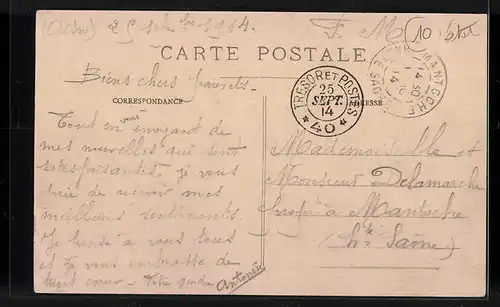 25 7bre 1914. F. M.
CARTE POSTALE
Biens chers parents.
CORRESPONDANCE
TRESOR ET POSTES
25
SEPT.
14
* 40 *
MANTOCHE
Tout en vous envoyant de
mes nouvelles qui sont
satisfaisantes, je vous
prie de recevoir mes
meilleurs sentiments.
Je pense à vous tous
et je vous embrasse de
tout cœur. Votre
Antonin
Mademoiselle et
Monsieur Delamarche
à Mantoche
Hte Saône